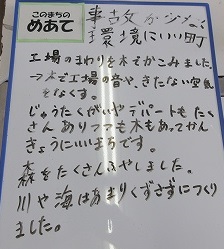 このまちの
めあて
事故が少なく
環境にいい町
工場のまわりを木でかこみました。
→木で工場の音や、きたない空気
をなくす。
じゅうたくがいやデパートもたく
さんありつつも木もあってかん
きょうにいいまちです。
森をたくさんふやしました。
川や海はあまりくずさずにつくり
ました。